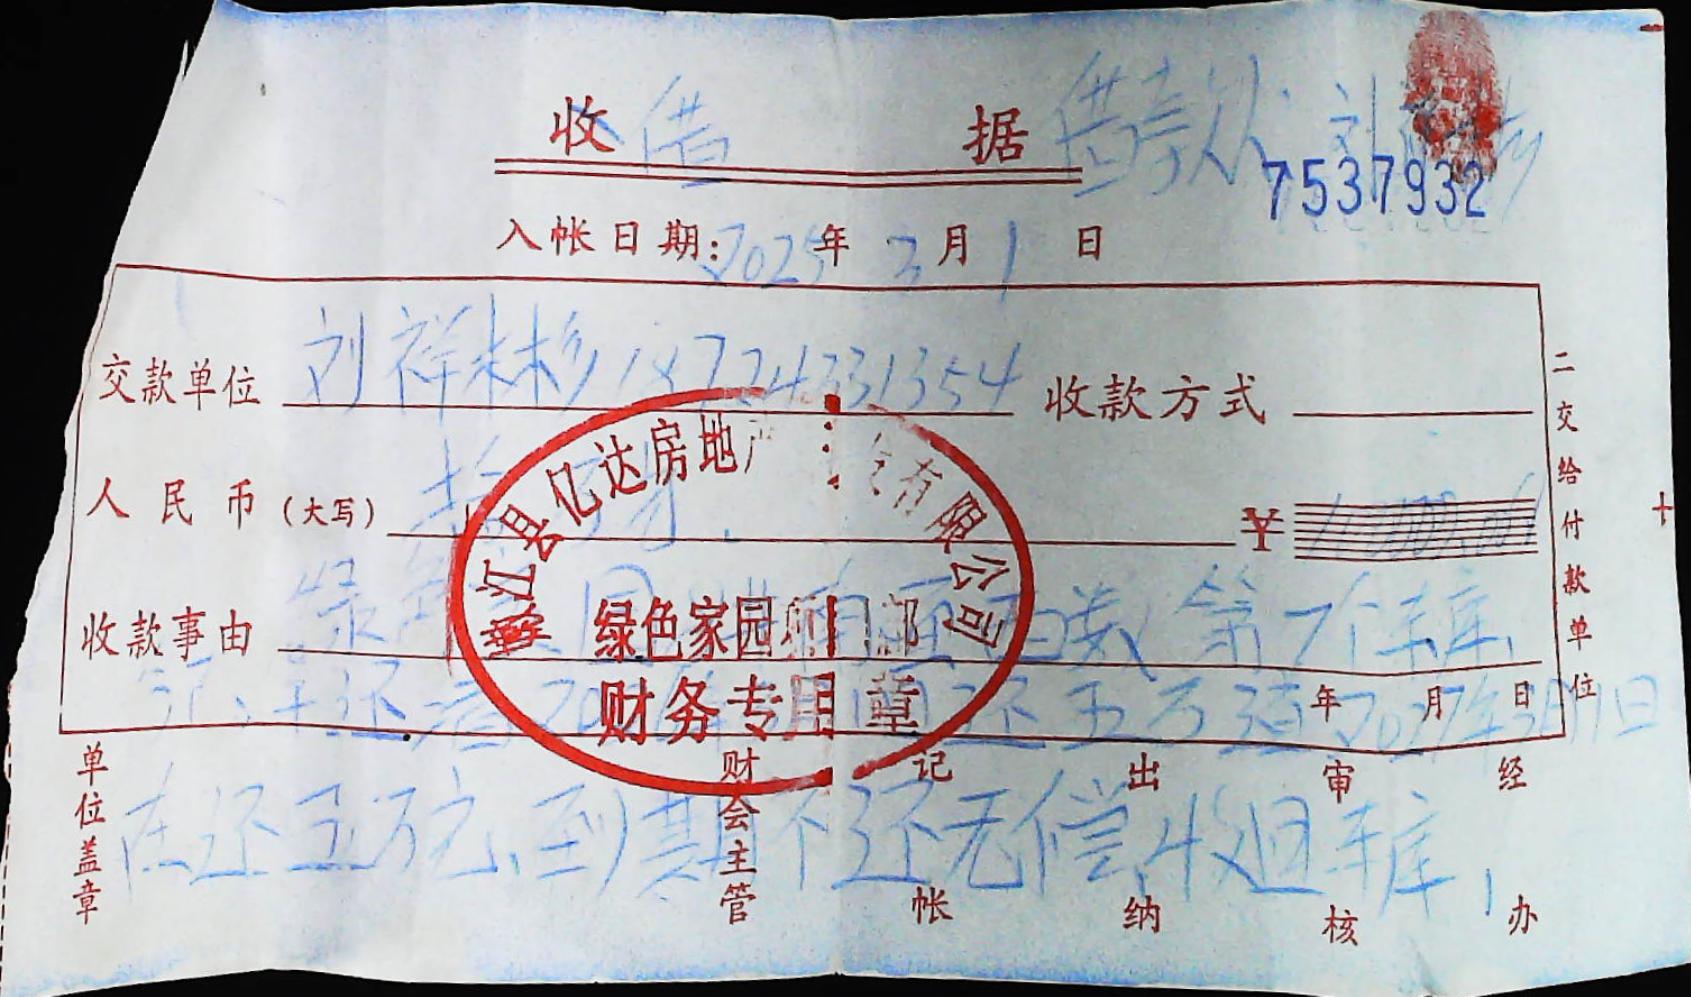 收 借 据 借款人: 刘
7537932
入帐日期: 2025年 3月 1日
交款单位 刘祥彬 18724331354 收款方式
人民币(大写) 拾万 ¥
收款事由 绿色家园 第7个车库,
还清 20 还五万 2027年3月1日
年 月 日
在还五万元、到期不还无偿收回车库,
綦江县亿达房地产 有限公司
绿色家园项目部
财务专用章
二交给付款单位
单位盖章 财会主管 记帐 出纳 审核 经办